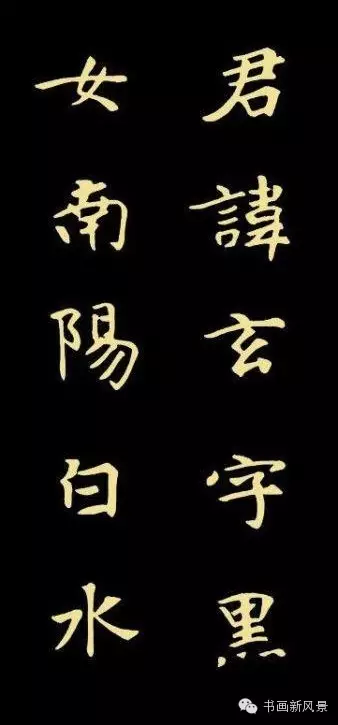 君諱玄字黑
女南陽白水
书画新风景